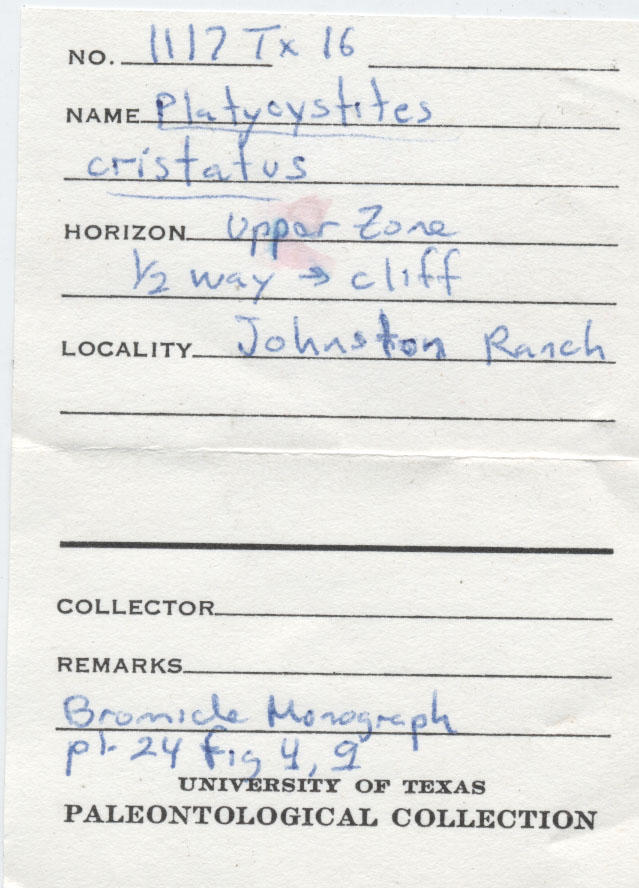 NO. 1117 Tx 16
NAME Platycystites
cristatus
HORIZON Upper Zone
1/2 way → cliff
LOCALITY Johnston Ranch
COLLECTOR
REMARKS
Bromide Monograph
pl. 24 fig 4, 9
UNIVERSITY OF TEXAS
PALEONTOLOGICAL COLLECTION